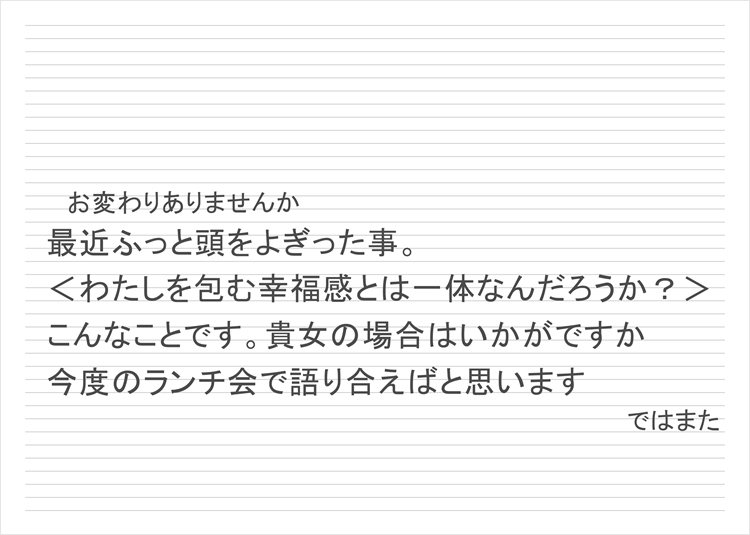 お変わりありませんか
最近ふっと頭をよぎった事。
＜わたしを包む幸福感とは一体なんだろうか？＞
こんなことです。貴女の場合はいかがですか
今度のランチ会で語り合えばと思います
ではまた